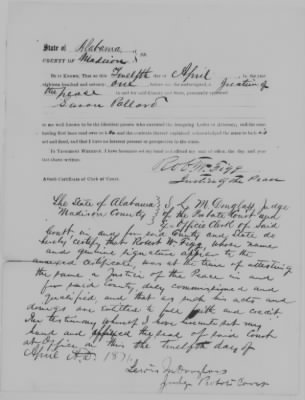 State of Alabama
COUNTY OF Madison } ss.
BE IT KNOWN, That on this Twelfth day of April in the year
eighteen hundred and seventy one before the undersigned, a Justice of
the peace in and for said County and State, personally appeared
Susan Pollard
to me well known to be the identical person who executed the foregoing Letter of Attorney, and the same
having first been read over to her and the contents thereof explained, acknowledged the same to be her
act and deed, and that I have no interest present or prospective in the same.
IN TESTIMONY WHEREOF, I have hereunto set my hand and affixed my seal of office, the day and year
last above written.
Robt W. Figg
Justice of the Peace
Attach Certificate of Clerk of Court.
The State of Alabama } I, L. M. Douglass Judge
Madison County } of the Probate Court and
Ex Officio Clerk of Said
Court in and for said County and State, do
hereby certify that Robert W. Figg, whose name
and genuine signature appear to the
annexed was at the time of attesting
the same a Justice of the Peace in and
for said County, duly commissioned and
qualified, and that as such his acts and
doings are entitled to full faith and credit.
In testimony whereof I have hereunto set my
hand and affixed the seal of said Court
at Office on this the twelfth day of
April A.D. 1871.
Lewis M Douglass
Judge Probate Court